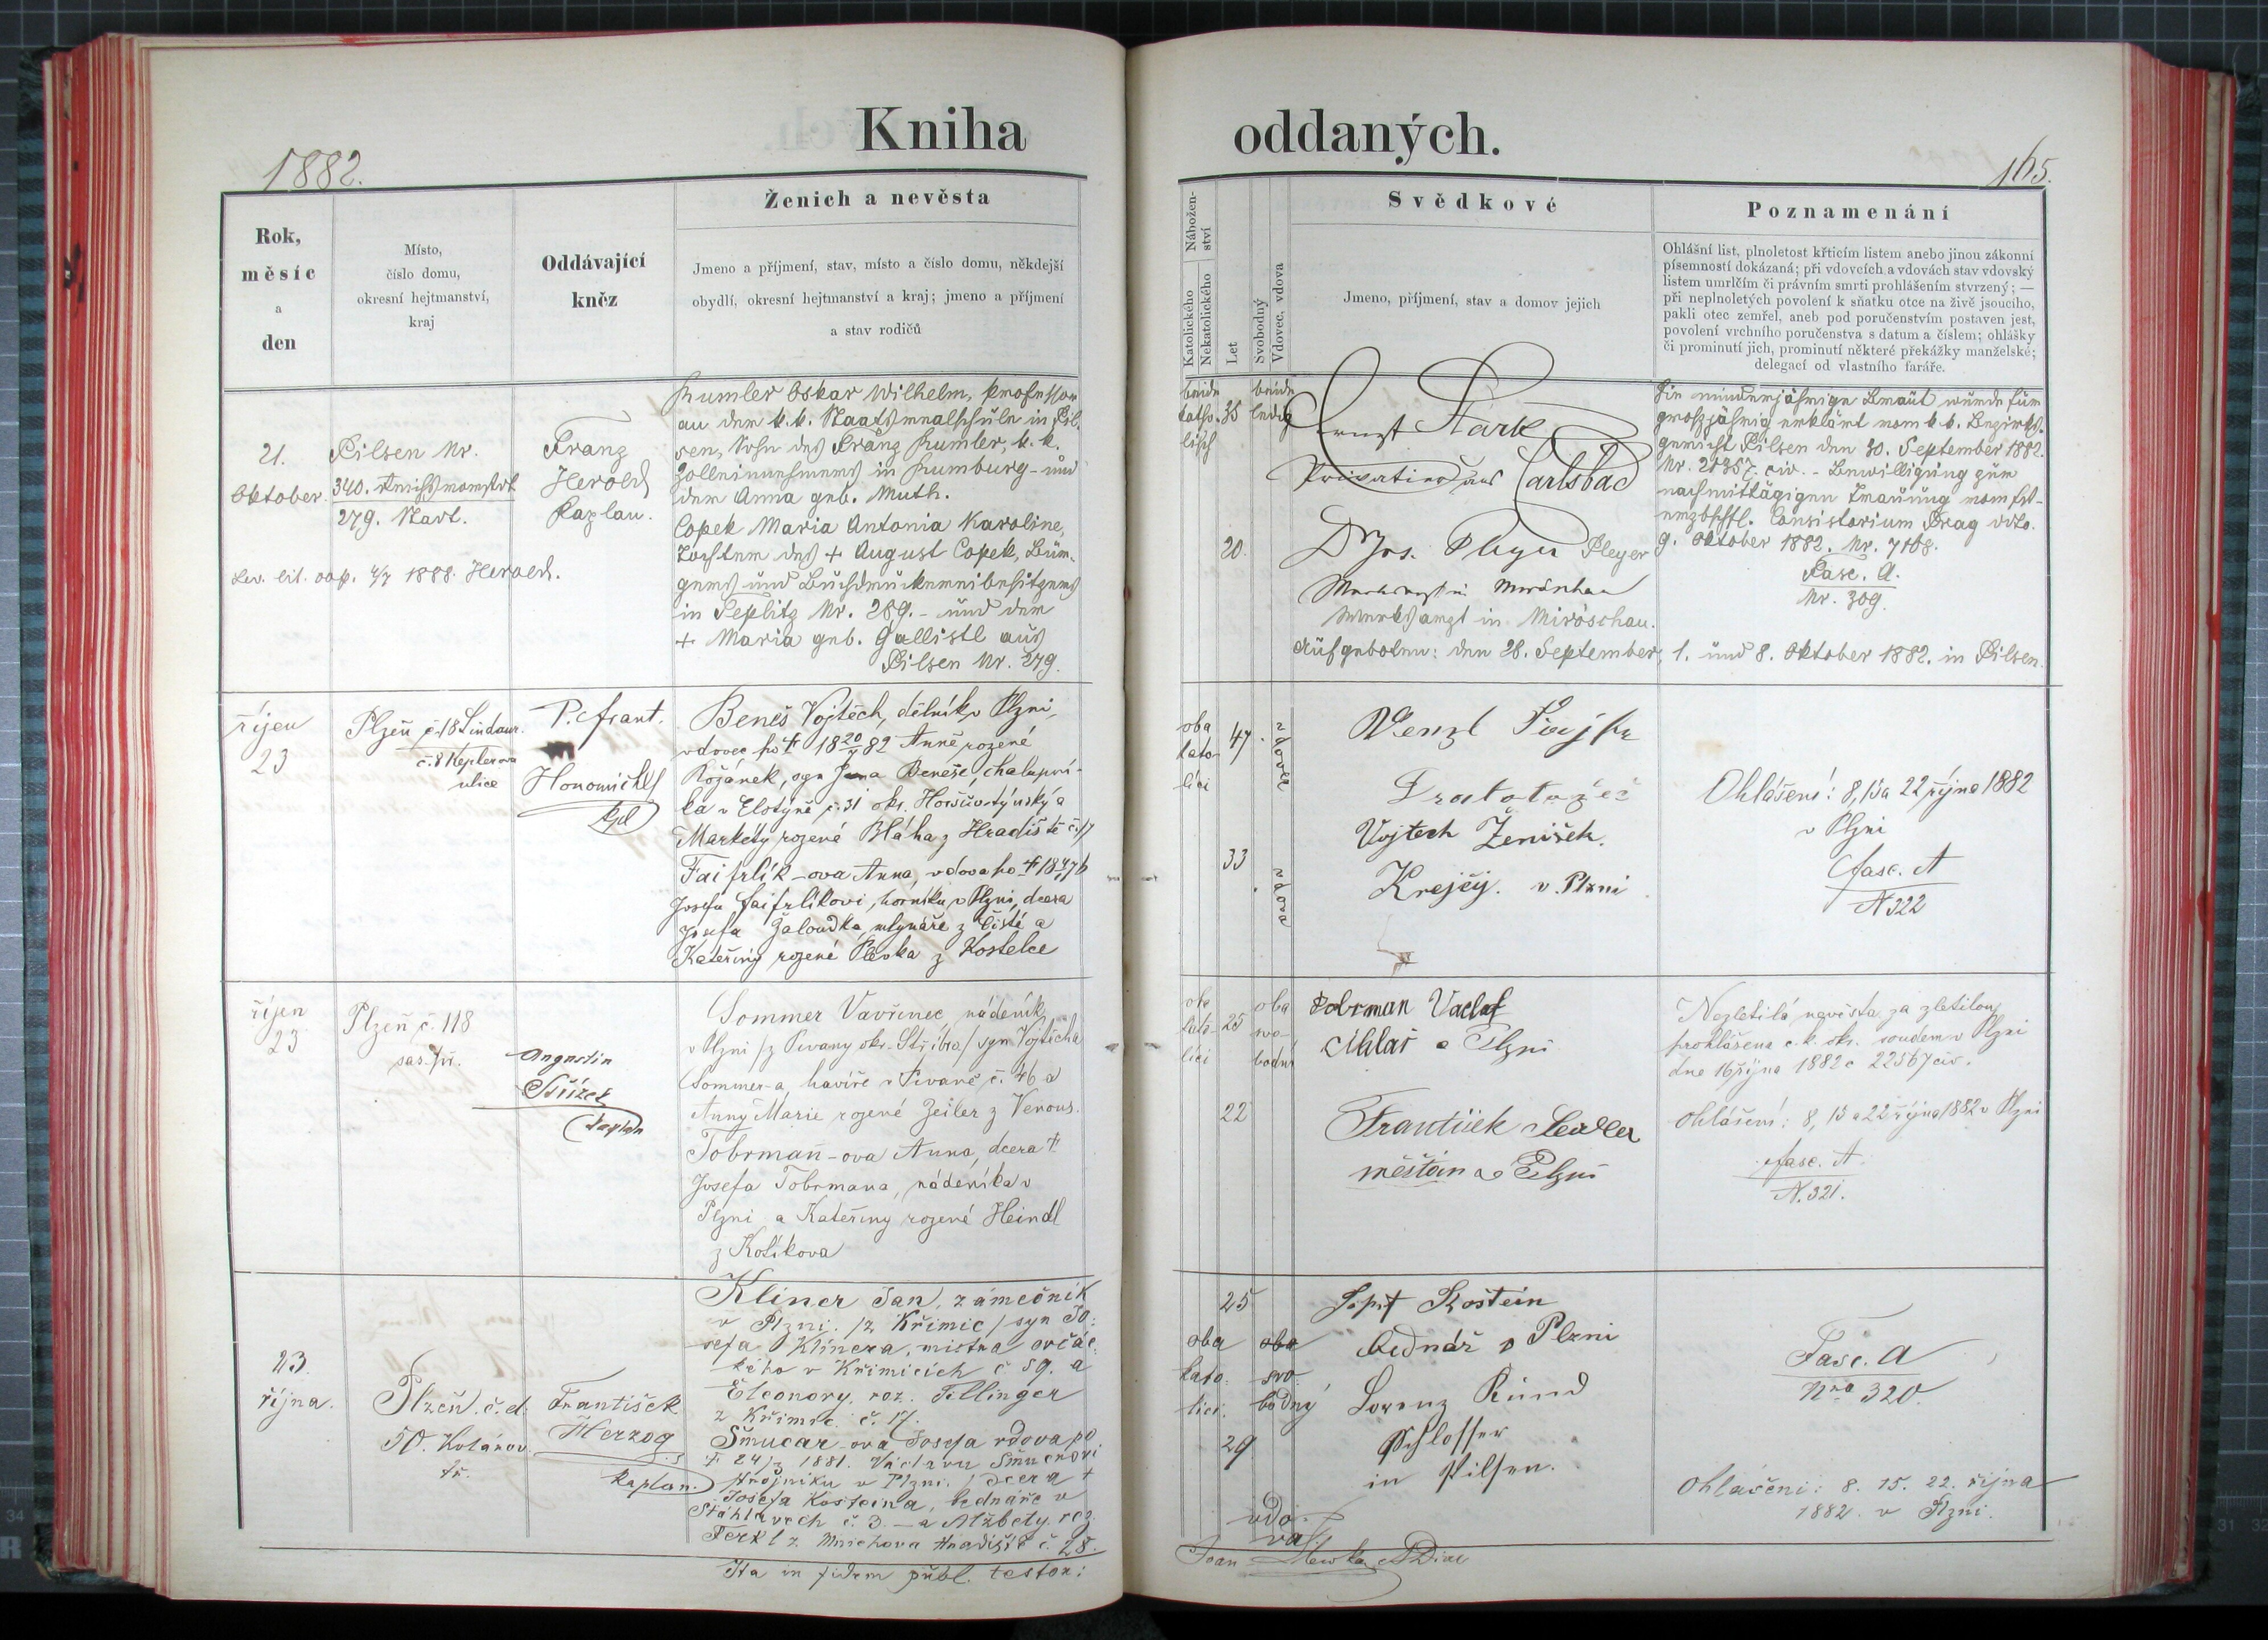 Kniha oddaných.
1882.
165.
Rok,
měsíc
a
den
Místo,
číslo domu,
okresní hejtmanství,
kraj
Oddávající
kněz
Ženich a nevěsta
Jmeno a příjmení, stav, místo a číslo domu, někdejší
obydlí, okresní hejtmanství a kraj; jmeno a příjmení
a stav rodičů
Nábožen-
ství
Katolického
Nekatolického
Let
Svobodný
Vdovec, vdova
Svědkové
Jmeno, příjmení, stav a domov jejich
Poznamenání
Ohlášní list, plnoletost křticím listem anebo jinou zákonní
písemností dokázaná; při vdovcích a vdovách stav vdovský
listem umrlčím či právním smrti prohlášením stvrzený; —
při neplnoletých povolení k sňatku otce na živě jsoucího,
pakli otec zemřel, aneb pod poručenstvím postaven jest,
povolení vrchního poručenstva s datum a číslem; ohlášky
či prominutí jich, prominutí některé překážky manželské;
delegací od vlastního faráře.
21.
Oktober.
Pilsen Nr.
340. Reichsvorstadt
279. Stadt.
Franz
Herold
Kaplan.
Rumler Oskar Wilhelm, Professor
an der k.k. Staatsrealschule in Pil-
sen, Sohn des Franz Rumler, k. k.
Zolleinnehmers in Rumburg - und
der Anna geb. Muth.
Copek Maria Antonia Karoline,
Tochter des + August Copek, Bür-
gers und Buchdruckereibesitzers
in Teplitz Nr. 289. - und der
+ Maria geb. Gallistl aus
Pilsen Nr. 279.
1888. Herold.
beide
katho-
lisch
35
20.
beide
ledig
Ernst Stark
Privatier aus Carlsbad
Dr Jos. Pleyer Pleyer
Werksarzt in Miröschau
Werksarzt in Miröschau.
Aufgeboten: den 28. September, 1. und 8. Oktober 1882. in Pilsen.
Die minderjährige Braut wurde für
großjährig erklärt vom k.k. Bezirks-
gericht Pilsen den 30. September 1882.
Nr. 21357. civ. - Bewilligung zur
nachmittägigen Trauung vom fst-
erzbschfl. Consistorium Prag ddto.
9. Oktober 1882. Nr. 7108.
Fasc. A.
Nr. 309.
říjen
23
Plzeň č. 18 Lindaur.
č. 8 Keplerova
ulice
P. Frant.
kpl
Beneš Vojtěch, dělník v Plzni,
vdovec po † 18 20/ 82 Anně rozené
Kožánek, syn Jana Beneše, chalupní-
ka v Elstýně č. 31 okr. Horšův-týnský a
Markéty rozené Bláha z Hradiště č. 17
Faifrlík-ova Anna, vdova po †
Josefu Faifrlíkovi, horníku v Plzni, dcera
Josefa Žaloudka, mlynáře z Čisté a
Kateřiny rozené Plevka z Kostelce
oba
kato-
líci
47
33
vdovec
vdova
Wenzl
Vojtech Ženíšek.
Krejčý. v Plzni
Ohlášení: 8, 15 a 22 října 1882
v Plzni
fasc. A
N 322
říjen
23
Plzeň č. 118
sas. př.
Augustin
Střížek
kaplan
Sommer Vavřinec, nádeník
v Plzni /z Pivany okr. Stříbra/ syn Vojtěcha
Sommer-a, havíře v Pivaně č. 46 a
Anny Marie rozené Zeiler z Venous.
Tobrman-ova Anna, dcera †
Josefa Tobrmana, nádeníka v
Plzni a Kateřiny rozené Heindl
z Kotíkova
oba
kato-
líci
25
22
oba
svo-
bodní
Dobrman Vaclaf
v Plzni
František Sedler
měšťan v Plzni
Nezletilá nevěsta za zletilou
prohlášena c. k. okr. soudem v Plzni
dne 16 října 1882 č 22567 civ.
Ohlášení: 8, 15 a 22 října 1882 v Plzni
fasc. A.
N. 321.
23.
října.
Plzeň. č. d.
50. Kolárov.
tř.
František
Herzog
kaplan.
Kliner Jan, zámečník
v Plzni. /z Křimic/ syn Jo-
sefa Klinera, mistra ovčác-
kého v Křimicích č 59. a
Eleonory. roz. Pillinger
z Křimic. č. 17.
Šmucar-ová Josefa vdova po
† 24/2 1881. Václavu Šmucrovi
strojníku v Plzni. / dcera †
Josefa Kosteina, bednáře v
Stáhlavech č 3. — a Alžbety. roz.
Terkl z Mnichova Hradiště č. 28.
oba
kato-
líci.
25
29
oba
svo-
bodný
vdo-
va
Josef Kostein
bednář v Plzni
Lorenz Kund
Schlosser
in Pilsen.
Fasc. A
Nro 320.
Ohlášeni: 8. 15. 22. října
1882. v Plzni.
Ita in fidem publ. testor: